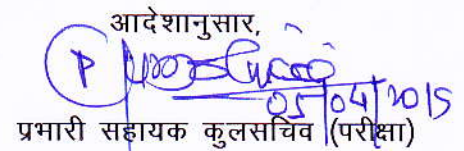 आदेशानुसार,
P
05/04/2015
प्रभारी सहायक कुलसचिव (परीक्षा)